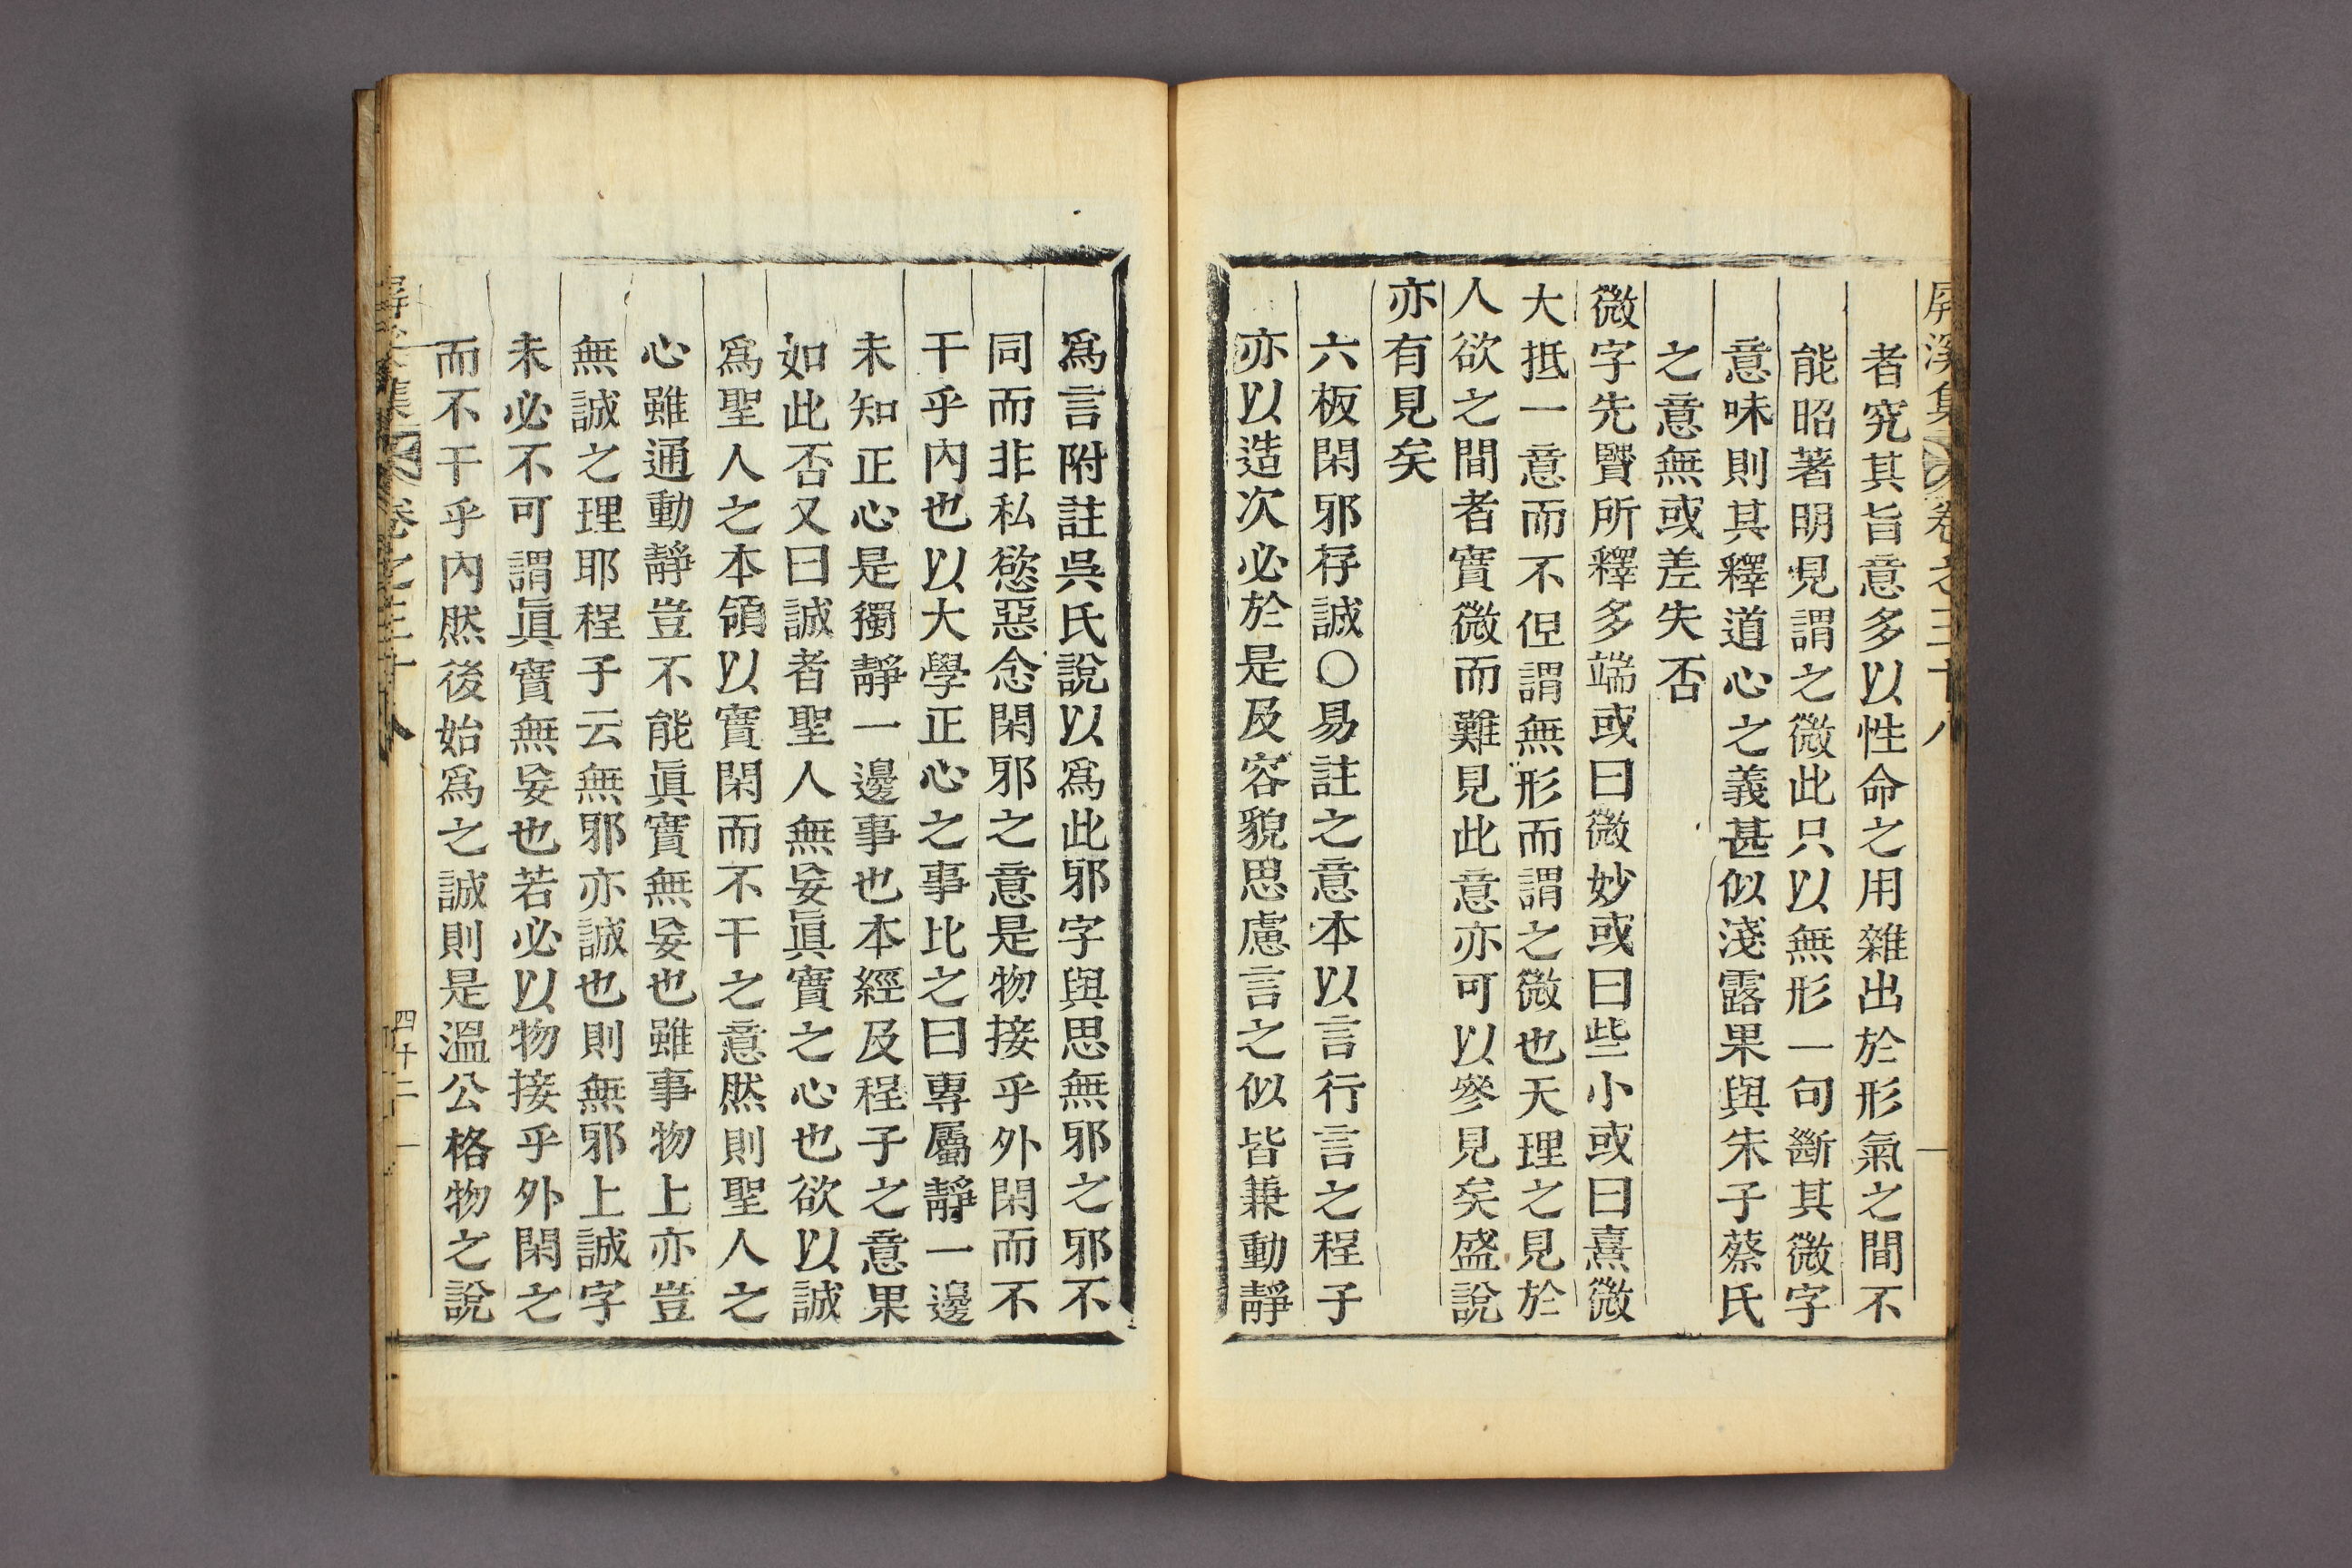 屛溪集 卷之三十八
者究其旨意多以性命之用雜出於形氣之間不
能昭著明見謂之微此只以無形一句斷其微字
意味則其釋道心之義甚似淺露果與朱子蔡氏
之意無或差失否
微字先賢所釋多端或曰微妙或曰些小或曰熹微
大抵一意而不但謂無形而謂之微也天理之見於
人欲之間者實微而難見此意亦可以參見矣盛說
亦有見矣
六板閑邪存誠○易註之意本以言行言之程子
亦以造次必於是及容貌思慮言之似皆兼動靜
爲言附註吳氏說以爲此邪字與思無邪之邪不
同而非私慾惡念閑邪之意是物接乎外閑而不
干乎內也以大學正心之事比之曰專屬靜一邊
未知正心是獨靜一邊事也本經及程子之意果
如此否又曰誠者聖人無妄眞實之心也欲以誠
爲聖人之本領以實閑而不干之意然則聖人之
心雖通動靜豈不能眞實無妄也雖事物上亦豈
無誠之理耶程子云無邪亦誠也則無邪上誠字
未必不可謂眞實無妄也若必以物接乎外閑之
而不干乎內然後始爲之誠則是溫公格物之說
屛溪集 卷之三十八
四十二